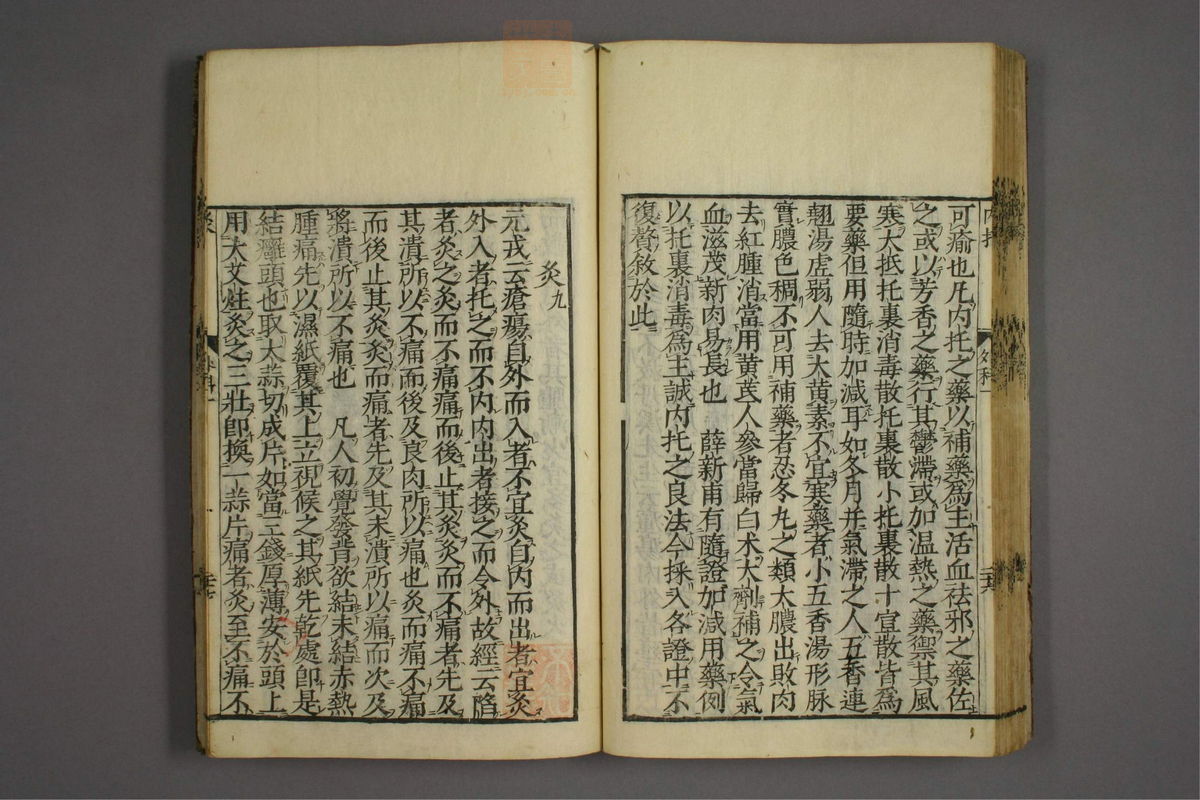 可瘉也凡内托之藥以補藥爲主活血祛邪之藥佐
之或以芳香之藥行其鬱滯或加温熱之藥禦其風
寒大抵托裏消毒散托裏散小托裏散十宣散皆爲
要藥但用隨時加減耳如冬月并氣滯之人五香連
翹湯虚弱人去大黄素不宜寒藥者小五香湯形脉
實膿色稠不可用補藥者忍冬丸之類大膿出敗肉
去紅腫消當用黄芪人參當歸白朮大劑補之令氣
血滋茂新肉易長也 薛新甫有隨證加減用藥例
以托裏消毒爲主誠内托之良法今採入各證中不
復贅敘於此
灸九
元戎云瘡瘍自外而入者不宜灸自内而出者宜灸
外入者托之而不内内出者接之而令外故經云陷
者灸之灸而不痛痛而後止其灸灸而不痛者先及
其潰所以不痛而後及良肉所以痛也灸而痛不痛
而後止其灸灸而痛者先及其未潰所以痛而次及
將潰所以不痛也 凡人初覺發背欲結未結赤熱
腫痛先以濕紙覆其上立視候之其紙先乾處即是
結癰頭也取大蒜切成片如當三錢厚薄安於頭上
用大艾炷灸之三壯即換一蒜片痛者灸至不痛不